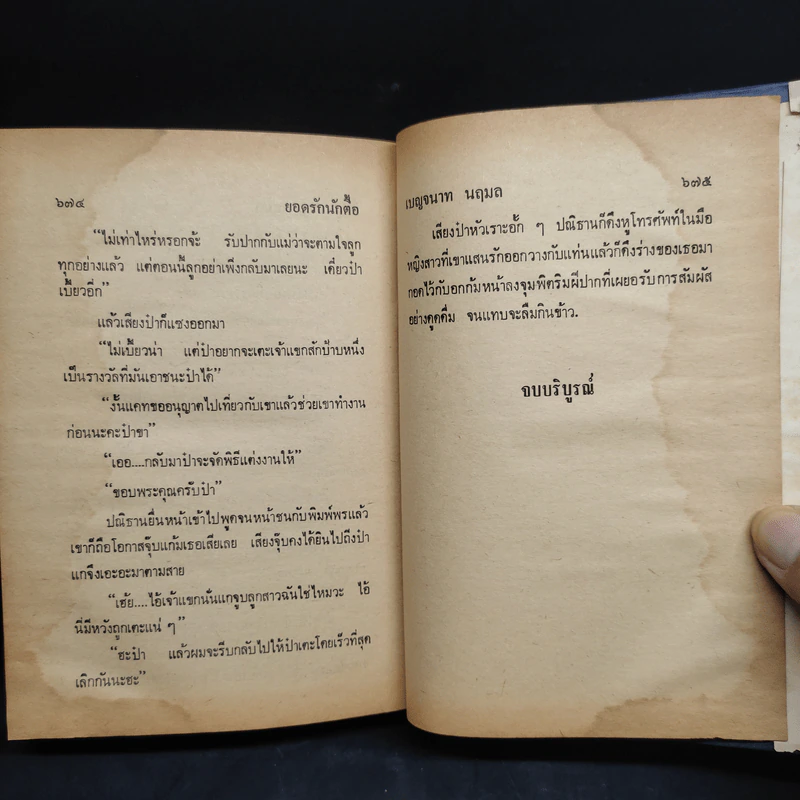 ๖๗๔
ยอดรักนักตื๊อ
“ไม่เท่าไหร่หรอกจ้ะ รับปากกับแม่ว่าจะตามใจลูก
ทุกอย่างแล้ว แต่ตอนนี้ลูกอย่าเพิ่งกลับมาเลยนะ เดี๋ยวป๋า
เบี้ยวอีก”
แล้วเสียงป๋าก็แซงออกมา
“ไม่เบี้ยวน่า แต่ป๋าอยากจะเตะเจ้าแขกสักป้าบหนึ่ง
เป็นรางวัลที่มันเอาชนะป๋าได้”
“งั้นแคทขออนุญาตไปเที่ยวกับเขาแล้วช่วยเขาทำงาน
ก่อนนะคะป๋าขา”
“เออ....กลับมาป๋าจะจัดพิธีแต่งงานให้”
“ขอบพระคุณครับป๋า”
ปณิธานยื่นหน้าเข้าไปพูดจนหน้าชนกับพิมพ์พรแล้ว
เขาก็ถือโอกาสจุ๊บแก้มเธอเสียเลย เสียงจุ๊บคงได้ยินไปถึงป๋า
แกจึงเอะอะมาตามสาย
“เฮ้ย....ไอ้เจ้าแขกนั่นแกจูบลูกสาวฉันใช่ไหมวะ ไอ้
นี่มีหวังถูกเตะแน่ ๆ”
“ฮะป๋า แล้วผมจะรีบกลับไปให้ป๋าเตะโดยเร็วที่สุด
เลิกกันนะฮะ”
เบญจนาท นฤมล
๖๗๕
เสียงป๋าหัวเราะอั้ก ๆ ปณิธานก็ดึงหูโทรศัพท์ในมือ
หญิงสาวที่เขาแสนรักออกวางกับแท่นแล้วก็ดึงร่างของเธอมา
กอดไว้กับอกก้มหน้าลงจุมพิตริมฝีปากที่เผยอรับการสัมผัส
อย่างดูดดื่ม จนแทบจะลืมกินข้าว.
จบบริบูรณ์